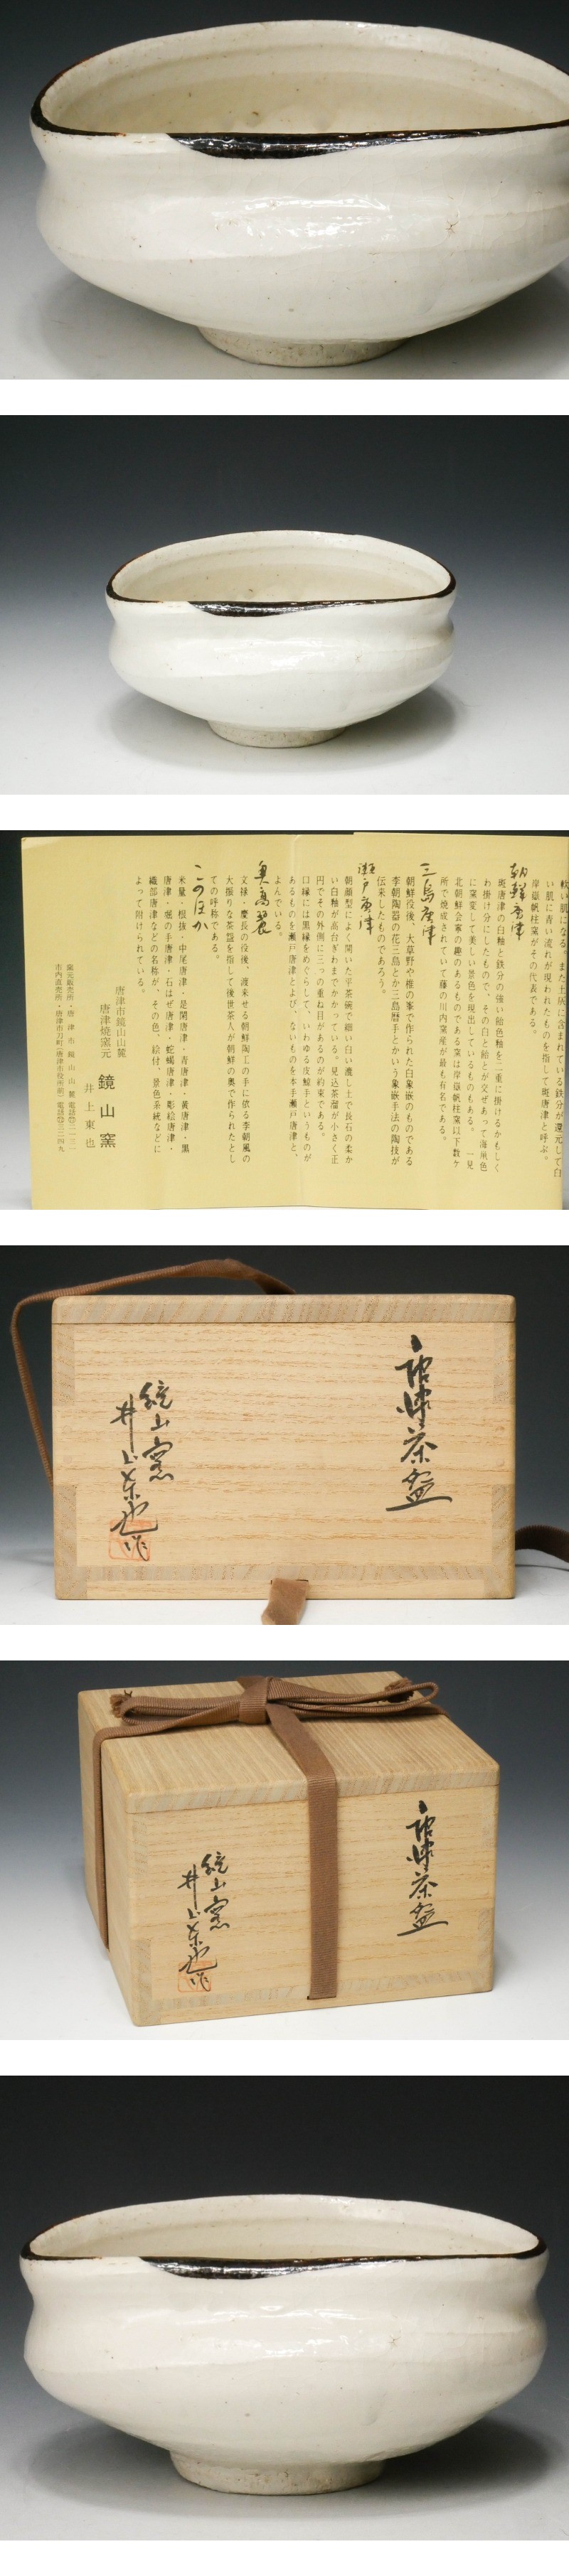 軟い肌になる。また土灰に含まれている鉄分が還元して白
い肌に青い流れが現われたものを指して斑唐津と呼ぶ。
岸嶽帆柱窯がその代表である。
朝鮮唐津
斑唐津の白釉と鉄分の強い飴色釉を二重に掛けるかもしく
わ掛け分にしたもので、その白と飴とが交ぜあって海鼠色
に窯変して美しい景色を現出しているものもある。一見
北朝鮮会寧の趣のあるものである窯は岸嶽帆柱窯以下数ケ
所で焼成されていて藤の川内窯産が最も有名である。
三島唐津
朝鮮役後、大草野や椎の峯で作られた白象嵌のものである
李朝陶器の花三島とか三島暦手とかいう象嵌手法の陶技が
伝来したものであろう。
瀬戸唐津
朝顔型によく開いた平茶碗で細い白い漉し土で長石の柔か
い白釉が高台ぎわまでかかっている。見込茶溜が小さく正
円でその外側に三つの重ね目があるのが約束である。
口縁には黒縁をめぐらして、いわゆる皮鯨手というものが
あるものを瀬戸唐津とよび、ないものを本手瀬戸唐津と、
よんでいる。
奥高麗
文禄・慶長の役後、渡来せる朝鮮陶工の手に依る李朝風の
大振りな茶盌を指して後世茶人が朝鮮の奥で作られたとし
ての呼称である。
このほか
米量・根抜・中尾唐津・是閑唐津・青唐津・黄唐津・黒
唐津・堀の手唐津・石はぜ唐津・蛇蝎唐津・彫絵唐津・
織部唐津などの名称が、その色、絵付、景色系統などに
よって附けられている。
唐津市鏡山山麓
唐津焼窯元 鏡山窯
井上東也
窯元販売所・唐津市鏡山山麓
市内直売所・唐津市刀町(唐津市役所前)
唐津茶盌
鏡山窯
井上東也作
唐津茶盌
鏡山窯
井上東也作